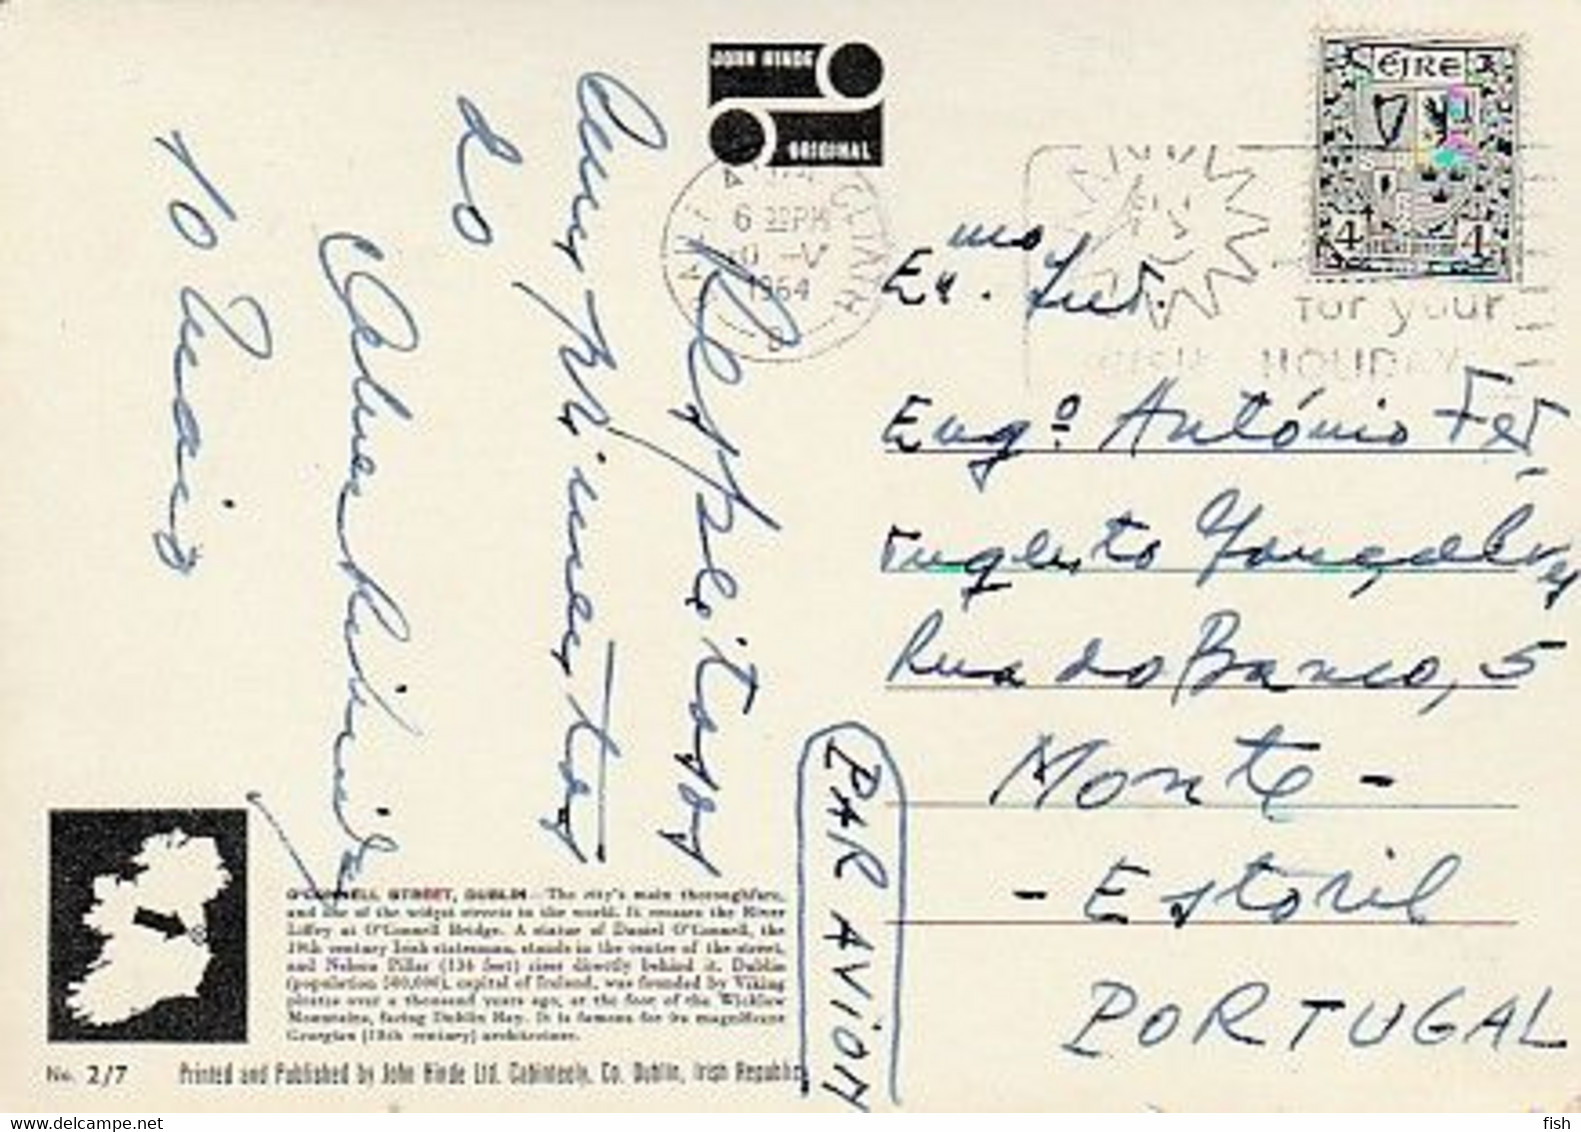 JOHN HINDE
ORIGINAL
ÉIRE
4 4
6 PM
V
1964
for your
HOLIDAY
Respeitosos
Cumprimentos
do
To Quais
Ex.mo Snr.
Engº. António Fer.
Augusto Gonçalves
Rua do Banco, 5
Monte -
- Estoril
PORTUGAL
PAR AVION
O'CONNELL STREET, DUBLIN — The city's main thoroughfare,
and one of the widest streets in the world. It crosses the River
Liffey at O'Connell Bridge. A statue of Daniel O'Connell, the
19th century Irish statesman, stands in the centre of the street,
and Nelson Pillar (134 feet) rises directly behind it. Dublin
(population 500,000), capital of Ireland, was founded by Viking
pirates over a thousand years ago, at the foot of the Wicklow
Mountains, facing Dublin Bay. It is famous for its magnificent
Georgian (18th century) architecture.
No. 2/7
Printed and Published by John Hinde Ltd. Cabinteely, Co. Dublin, Irish Republic
www.delcampe.net
fish